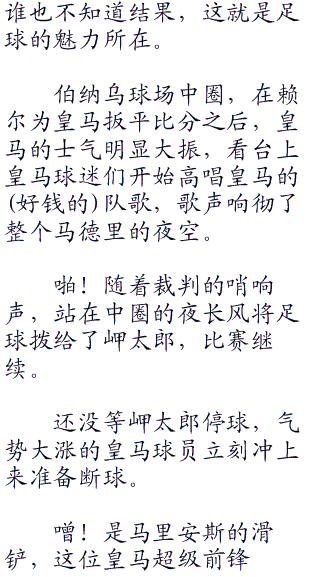 谁也不知道结果，这就是足
球的魅力所在。
伯纳乌球场中圈，在赖
尔为皇马扳平比分之后，皇
马的士气明显大振，看台上
皇马球迷们开始高唱皇马的
(好钱的)队歌，歌声响彻了
整个马德里的夜空。
啪！随着裁判的哨响
声，站在中圈的夜长风将足
球拨给了岬太郎，比赛继
续。
还没等岬太郎停球，气
势大涨的皇马球员立刻冲上
来准备断球。
噌！是马里安斯的滑
铲，这位皇马超级前锋